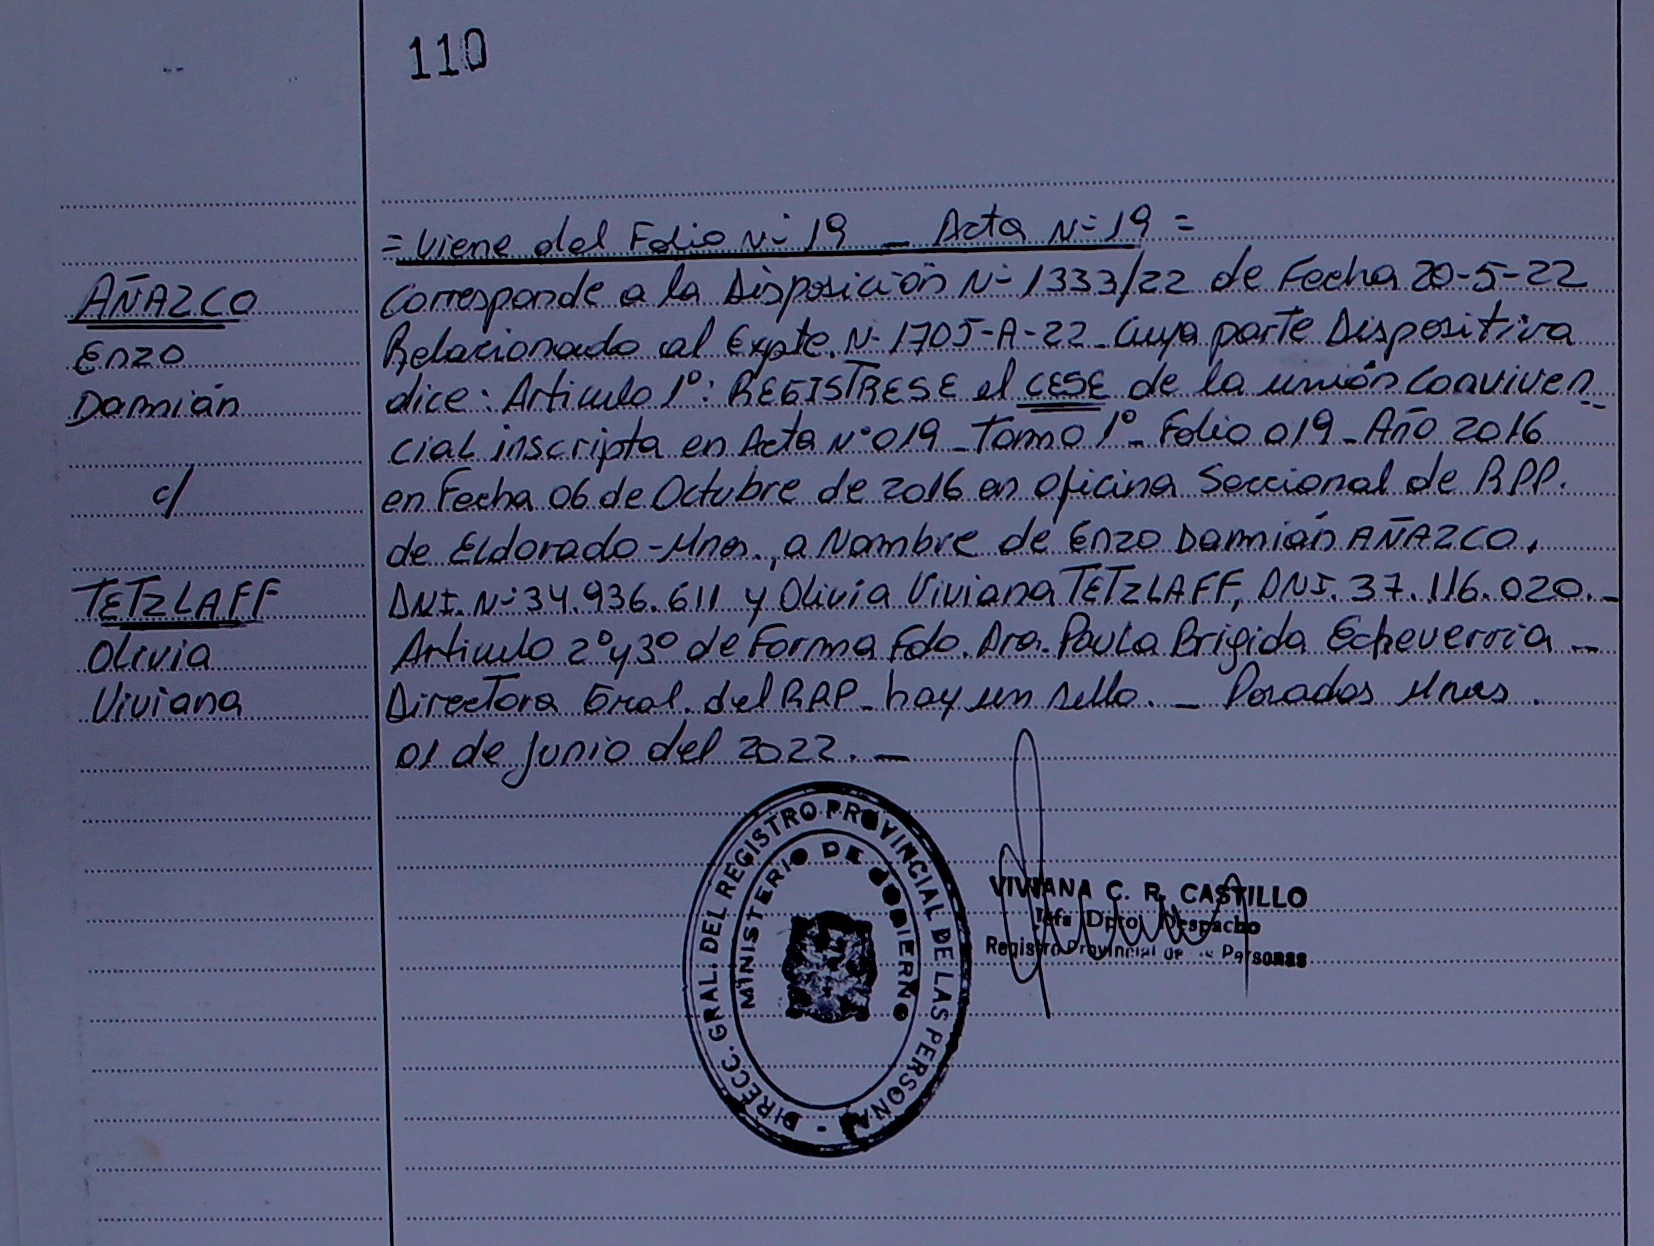 110
= Viene del Folio Nº 19 _ Acta Nº 19 =
AÑAZCO
Enzo
Damián
c/
TETZLAFF
Olivia
Viviana
Corresponde a la Disposición Nº 1333/22 de Fecha 20-5-22
Relacionado al Expte. Nº 1705-A-22 _ Cuya parte Dispositiva
dice: Articulo 1º: REGISTRESE el CESE de la unión Conviven_
cial inscripta en Acta Nº 019 _ Tomo 1º _ Folio 019 _ Año 2016
en Fecha 06 de Octubre de 2016 en oficina Seccional de RPP.
de Eldorado - Mnes., a Nombre de Enzo Damián AÑAZCO,
DNI. Nº 34.936.611 y Olivia Viviana TETZLAFF, DNI. 37.116.020. _
Articulo 2º y 3º de Forma Fdo. Dra. Paula Brigida Echeverria _
Directora Gral. del RPP _ hay un sello. _ Posadas Mnes.
01 de Junio del 2022. _
DIRECC. GRAL. DEL REGISTRO PROVINCIAL DE LAS PERSONAS -
MINISTERIO DE GOBIERNO
VIVIANA C. R. CASTILLO
Jefa Dpto. Despacho
Registro Provincial de las Personas